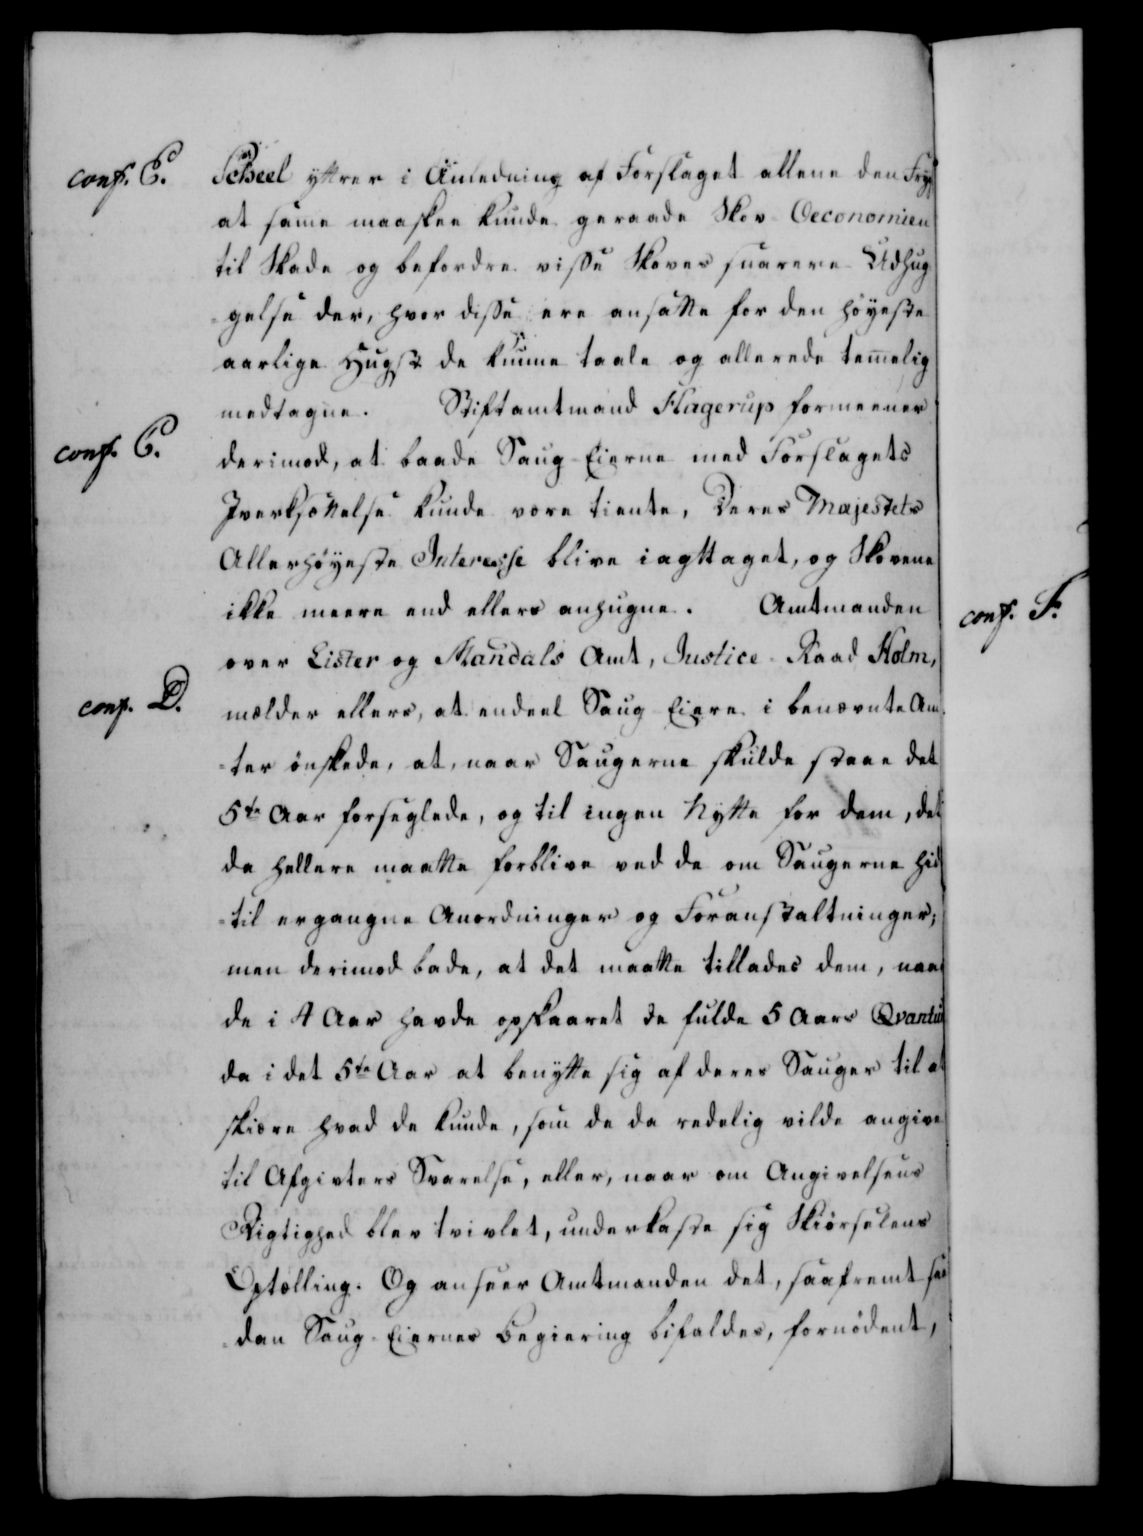 conf. E. Scheel yttrer i Anledning af Forslaget allene den Fryg
at same maaskee kunde geraade Skov-Oeconomien
til Skade og befordre visse Skoves snarere Udhug-
-gelse der, hvor disse ere ansatte for den høyeste
aarlige Hugst de kunne taale og allerede temelig
medtagne. Stiftamtmand Hagerup formeener
conf. C. derimod, at baade Saug-Eierne med Forslagets
Iverksættelse kunde være tiente, Deres Majestets
Allerhøyeste Interesse blive iagttaget, og Skovene
ikke meere end ellers anhugne. Amtmanden
conf. F.
over Lister og Mandals Amt, Justice-Raad Holm,
conf. D. mælder ellers, at endeel Saug-Eiere i benævnte Am-
-ter ønskede, at, naar Saugerne skulde staae det
5te Aar forseglede, og til ingen Nytte for dem, det
da hellere maatte forblive ved de om Saugerne hid
-til ergangne Anordninger og Foranstaltninger;
men derimod bade, at det maatte tillades dem, naar
de i 4 Aar havde opskaaret de fulde 5 Aars Qvantum
da i det 5te Aar at benytte sig af deres Sauger til at
skiære hvad de kunde, som de da redelig vilde angive
til Afgivters Svarelse, eller, naar om Angivelsens
Rigtighed blev tvivlet, underkaste sig Skiørselens
Optælling. Og anseer Amtmanden det, saafremt saa
-dan Saug-Eiernes Begiering bifaldes, fornødent,